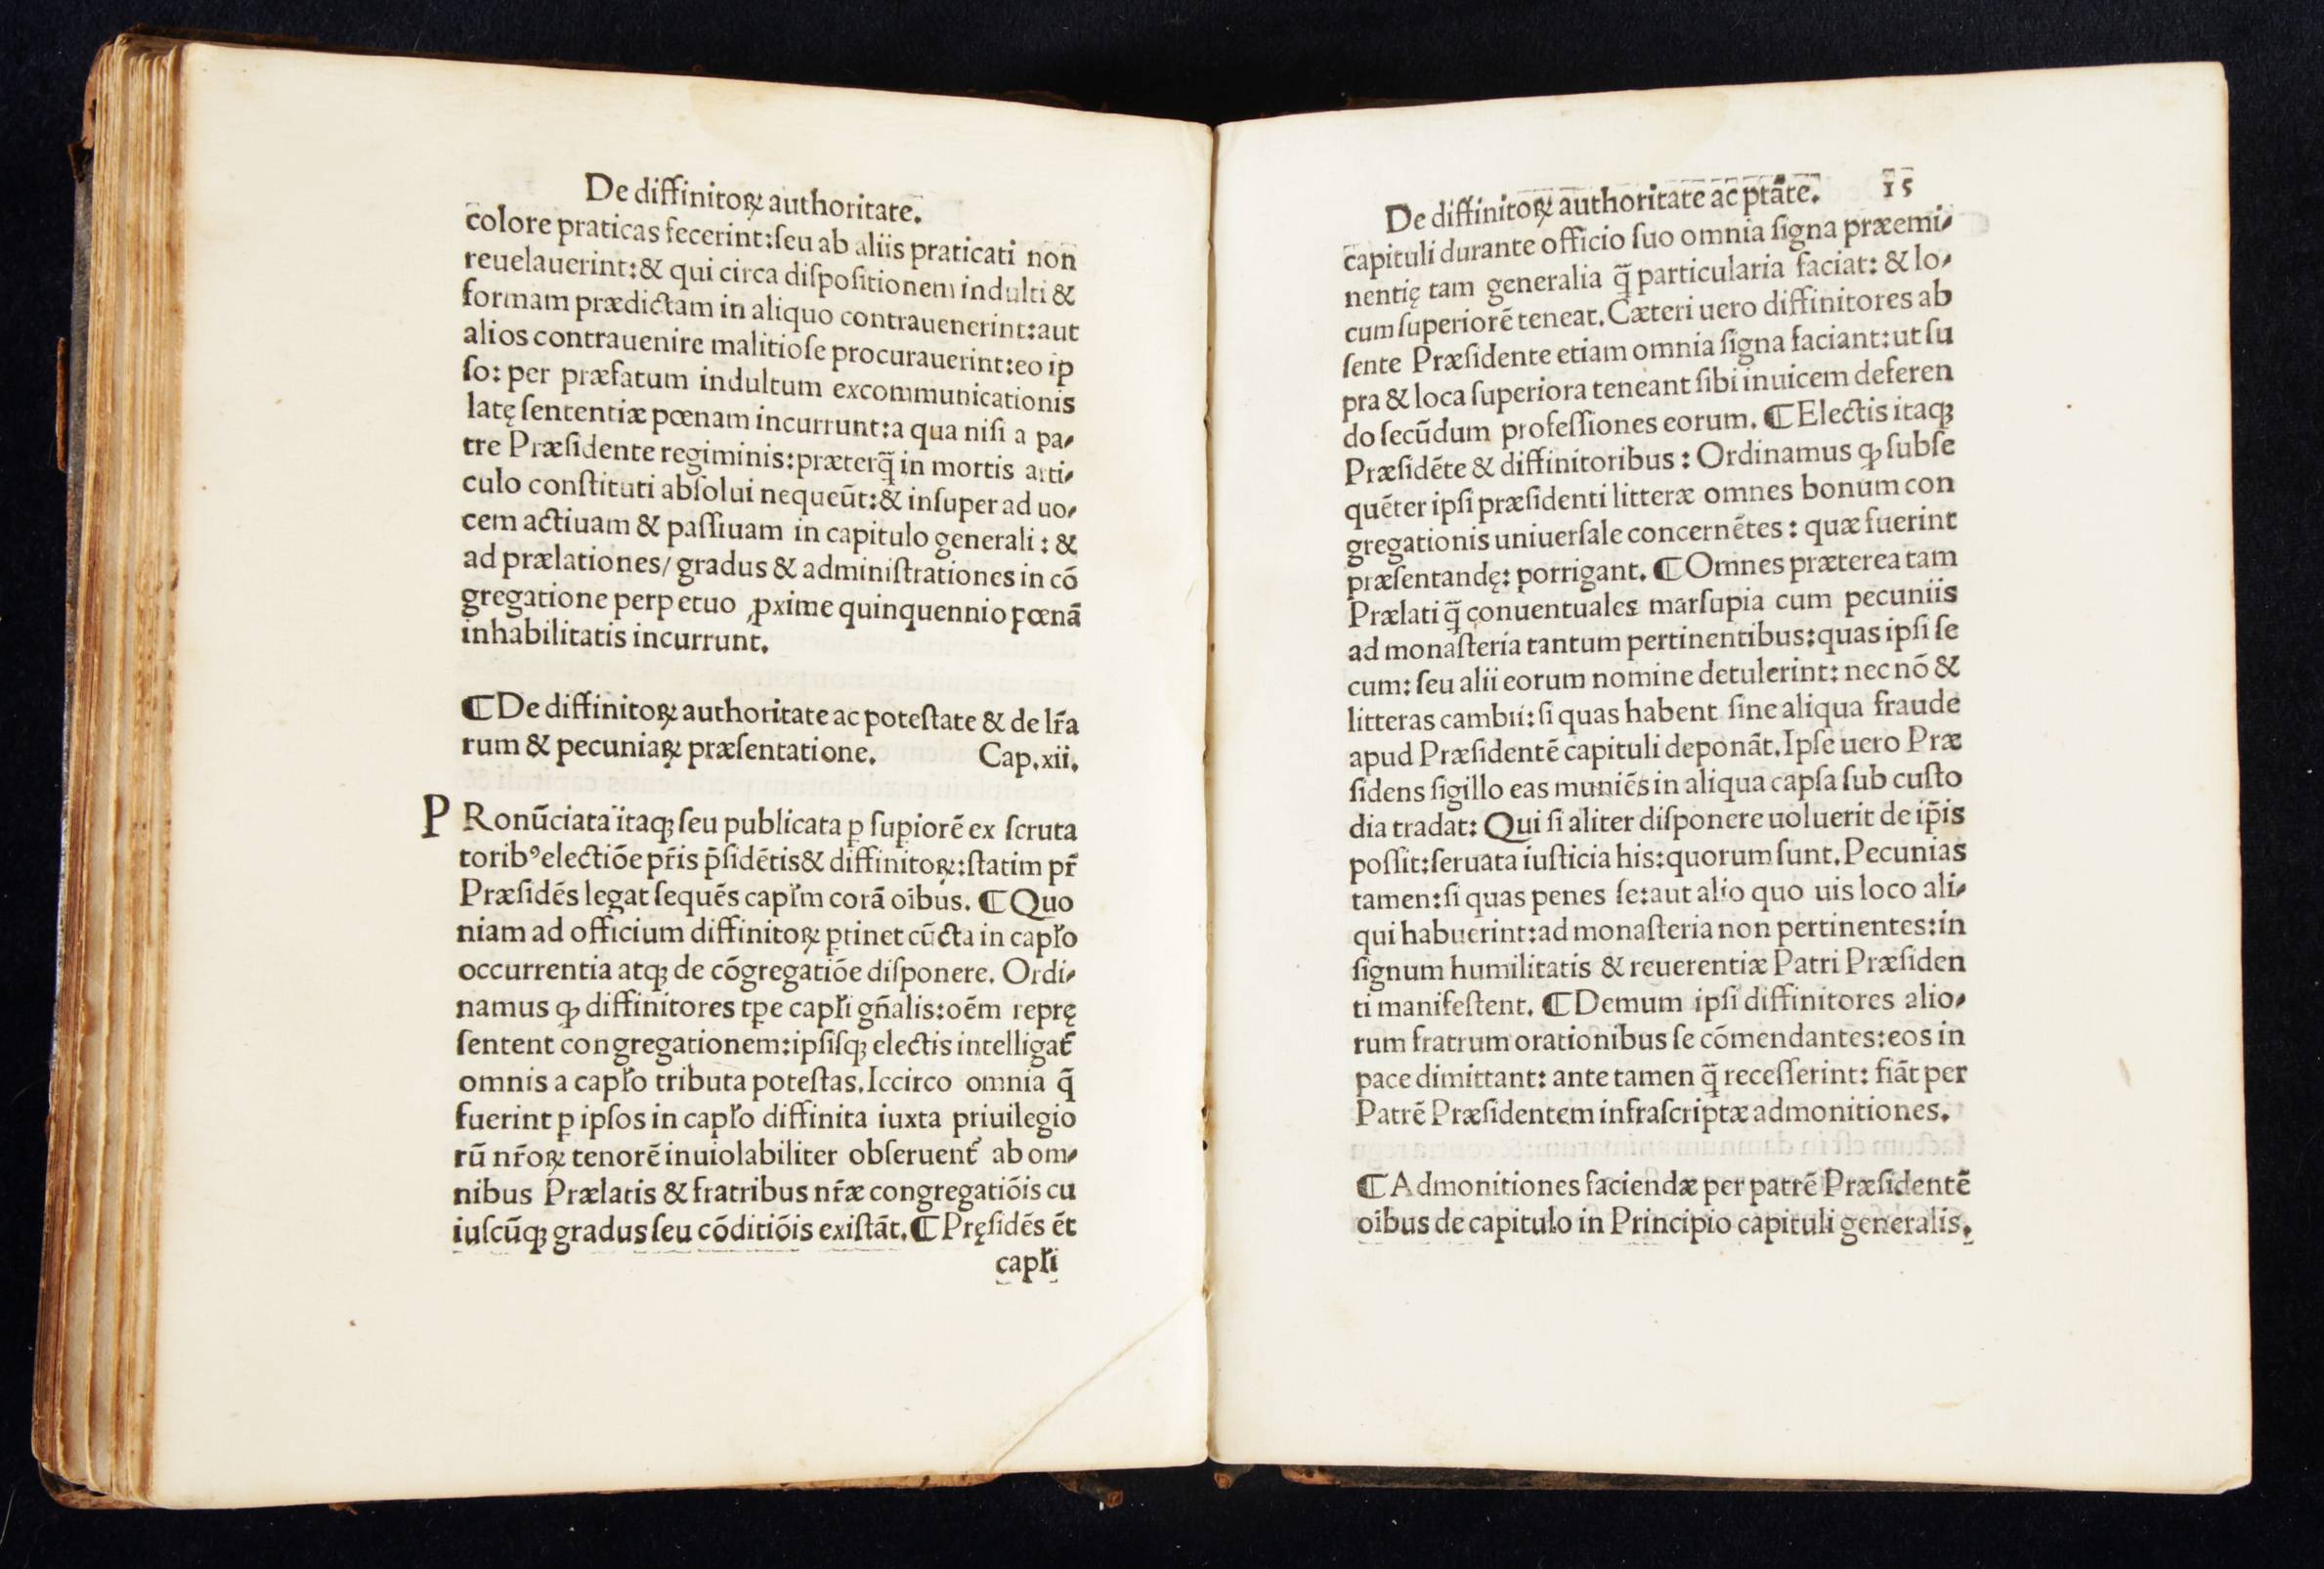 De diffinitoꝝ authoritate.
colore praticas fecerint:ſeu ab aliis praticati non
reuelauerint:& qui circa diſpoſitionem indulti &
formam prædictam in aliquo contrauenerint:aut
alios contrauenire malitioſe procurauerint:eo ip
ſo: per præfatum indultum excommunicationis
latę ſententiæ pœnam incurrunt:a qua niſi a pa⸗
tre Præſidente regiminis:præterq̃ in mortis arti⸗
culo conſtituti abſolui nequeũt:& inſuper ad uo⸗
cem actiuam & paſſiuam in capitulo generali : &
ad prælationes/ gradus & adminiſtrationes in cõ
gregatione perpetuo ꝓxime quinquennio pœnã
inhabilitatis incurrunt.
¶De diffinitoꝝ authoritate ac poteſtate & de lr̃a
rum & pecuniaꝝ præſentatione. Cap.xii.
PRonũciata itaqꝫ ſeu publicata ꝑ ſupiorẽ ex ſcruta
toribꝰ electiõe pr̃is p̃ſidẽtis& diffinitoꝝ:ſtatim pr̃
Præſidẽs legat ſequẽs capl̃m corã oĩbus. ¶Quo
niam ad officium diffinitoꝝ ꝑtinet cũcta in capl̃o
occurrentia atqꝫ de cõgregatiõe diſponere. Ordi⸗
namus ꝙ diffinitores tꝑe capl̃i gñalis:oẽm reprę
ſentent congregationem:ipſiſqꝫ electis intelligat᷑
omnis a capl̃o tributa poteſtas.Iccirco omnia q̃
fuerint ꝑ ipſos in capl̃o diffinita iuxta priuilegio
rũ nr̃oꝝ tenorẽ inuiolabiliter obſeruent᷑ ab om⸗
nibus Prælatis & fratribus nr̃æ congregatiõis cu
iuſcũqꝫ gradus ſeu cõditiõis exiſtãt.¶Pręſidẽs ẽt
capl̃i
De diffinitoꝝ authoritate ac ptãte. 15
capituli durante officio ſuo omnia ſigna præemi⸗
nentię tam generalia q̃ particularia faciat: & lo⸗
cum ſuperiorẽ teneat.Cæteri uero diffinitores ab
ſente Præſidente etiam omnia ſigna faciant:ut ſu
pra & loca ſuperiora teneant ſibi inuicem deferen
do ſecũdum profeſſiones eorum. ¶Electis itaqꝫ
Præſidẽte & diffinitoribus : Ordinamus ꝙ ſubſe
quẽter ipſi præſidenti litteræ omnes bonum con
gregationis uniuerſale concernẽtes : quæ fuerint
præſentandę: porrigant. ¶Omnes præterea tam
Prælati q̃ conuentuales marſupia cum pecuniis
ad monaſteria tantum pertinentibus:quas ipſi ſe
cum: ſeu alii eorum nomine detulerint: nec nõ &
litteras cambii: ſi quas habent ſine aliqua fraude
apud Præſidentẽ capituli deponãt.Ipſe uero Præ
ſidens ſigillo eas muniẽs in aliqua capſa ſub cuſto
dia tradat: Qui ſi aliter diſponere uoluerit de ip̃is
poſſit:ſeruata iuſticia his:quorum ſunt.Pecunias
tamen:ſi quas penes ſe:aut alio quo uis loco ali⸗
qui habuerint:ad monaſteria non pertinentes:in
ſignum humilitatis & reuerentiæ Patri Præſiden
ti manifeſtent. ¶Demum ipſi diffinitores alio⸗
rum fratrum orationibus ſe cõmendantes:eos in
pace dimittant: ante tamen q̃ receſſerint: fiãt per
Patrẽ Præſidentem infraſcriptæ admonitiones.
¶Admonitiones faciendæ per patrẽ Præſidentẽ
oĩbus de capitulo in Principio capituli generalis.